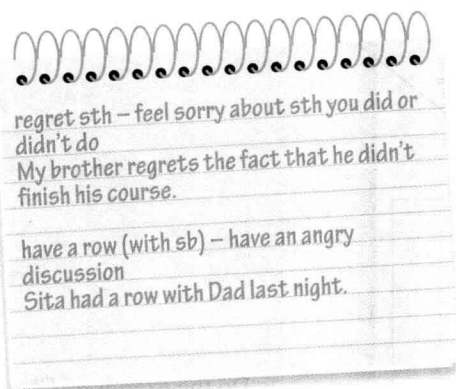 regret sth – feel sorry about sth you did or
didn't do
My brother regrets the fact that he didn't
finish his course.
have a row (with sb) – have an angry
discussion
Sita had a row with Dad last night.